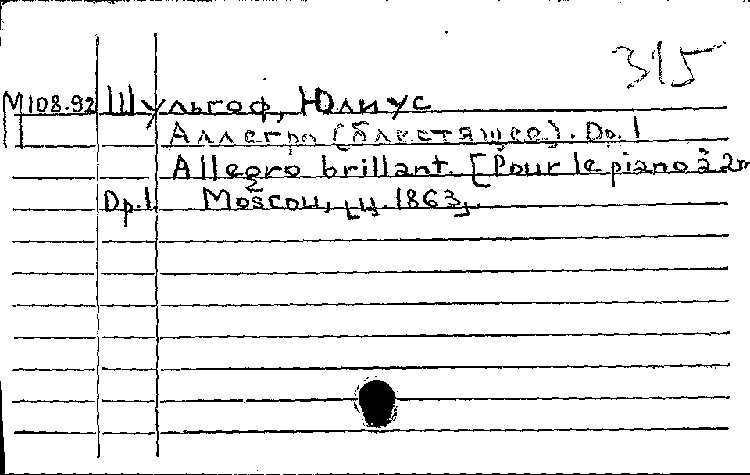 315
М108.92 Шульгоф, Юлиус
Аллегро (блестящее). Op. 1
Allegro brillant. [Pour le piano à 2m
Op. 1. Moscou, [ц. 1863]